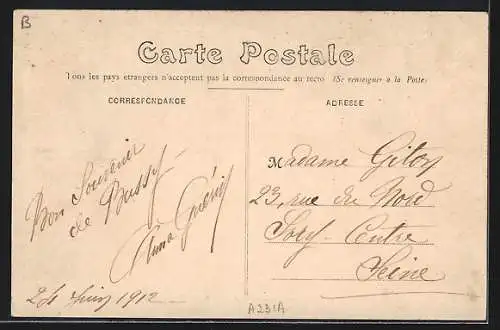 B
Carte Postale
Tous les pays etrangers n'acceptent pas la correspondance au recto (Se renseigner à la Poste)
CORRESPONDANCE
ADRESSE
Bon Souvenir
de Bussy
Anna Guérin
24 Juin 1912
Madame Giton
23, rue du Nord
Centre
Seine
A231A